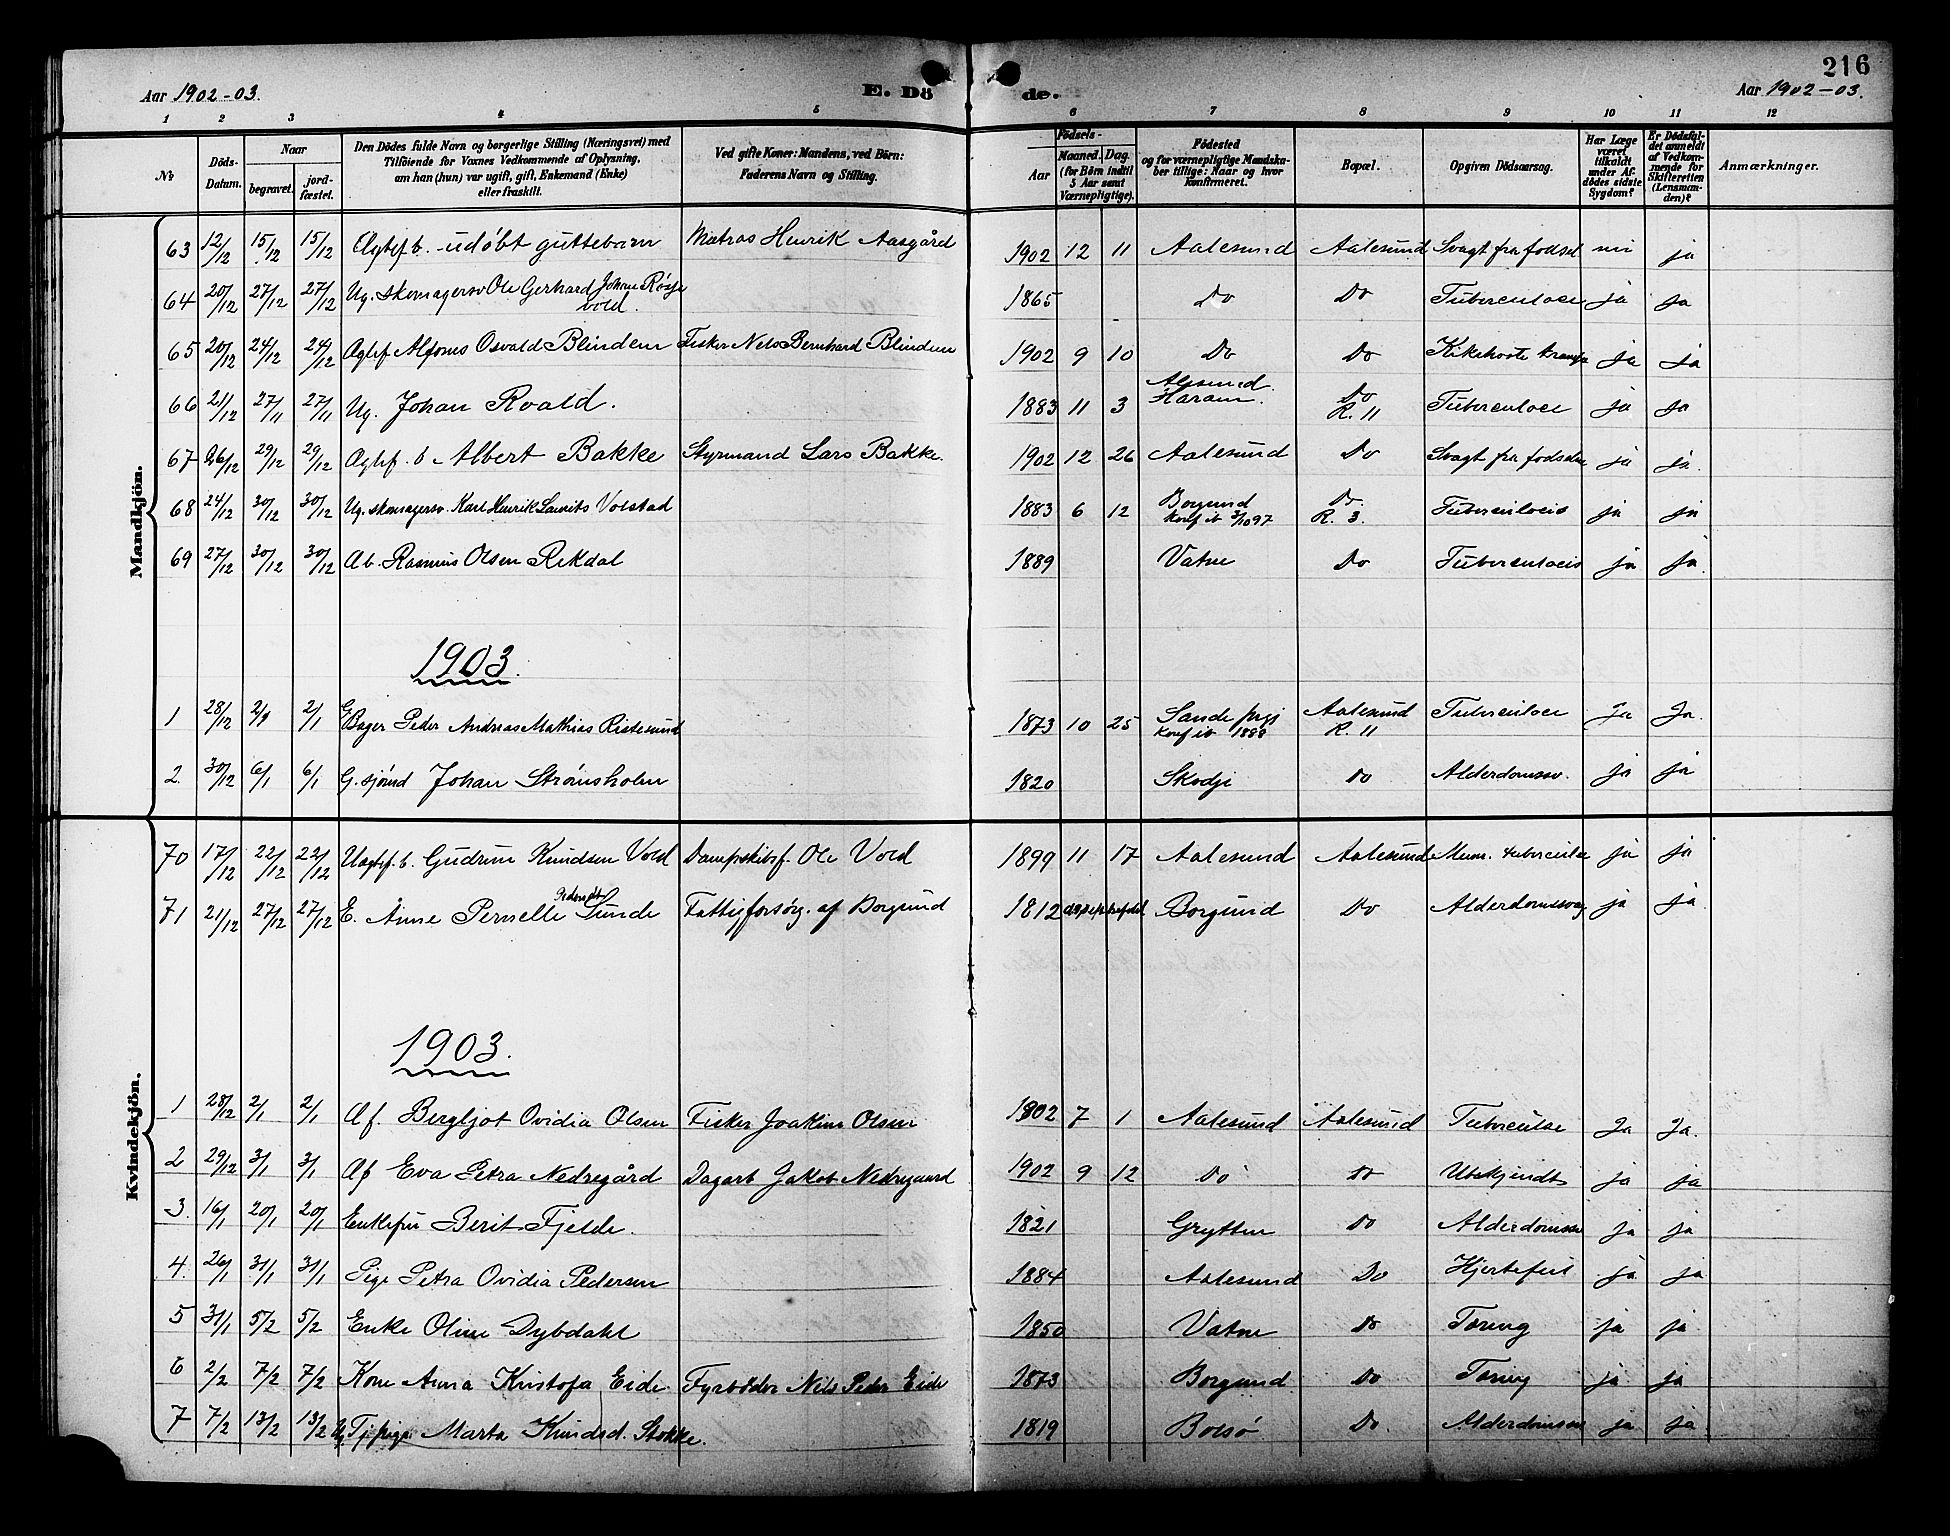 216
Aar 1902-03. E. Dö de. Aar 1902-03.
1 2 3 4 5 6 7 8 9 10 11 12
№
Döds-Datum.
Naar
begravet. jord-fæstet.
Den Dödes fulde Navn og borgerlige Stilling (Næringsvei) med
Tilföiende for Voxnes Vedkommende af Oplysning,
om han (hun) var ugift, gift, Enkemand (Enke)
eller fraskilt.
Ved gifte Koner: Mandens, ved Börn:
Faderens Navn og Stilling.
Födsels-
Aar Maaned. Dag.
(for Börn indtil
5 Aar samt
Værnepligtige).
Födested
og for værnepligtige Mandska-
ber tillige: Naar og hvor
konfirmeret.
Bopæl.
Opgiven Dödsaarsag.
Har Læge
været
tilkaldt
under Af-
dödes sidste
Sygdom?
Er Dödsfal-
det anmeldt
af Vedkom-
mende for
Skifteretten
(Lensman-
den)?
Anmærkninger.
Mandkjön.
63 12/12 15/12 15/12 Ægtef b. udøbt guttebarn Matros Henrik Aasgård 1902 12 11 Aalesund Aalesund Svagt fra fodsel nei ja
64 20/12 27/12 27/12 Ug. skomagersv Ole Gerhard Johan vold. 1865 Do Do Tuberculose ja ja
65 20/12 24/12 24/12 Alfons Osvald Blindem Fisker Nels Bernhard Blindem 1902 9 10 Do Do Kikehoste ja ja
66 21/12 27/11 27/11 Ug. Johan Roald. 1883 11 3 Alesund. Haram. Do R. 11 Tuberculose ja ja
67 26/12 29/12 29/12 Ægtef. b Albert Bakke Styrmand Lars Bakke. 1902 12 26 Aalesund Do Svagt fra fodselen ja ja.
68 24/12 30/12 30/12 Ug. skomagersv. Karl Henrik Laurits Volstad 1883 6 12 Borgund Konf ib 3/10 97 Do. R. 3. Tuberculosis ja ja
69 27/12 30/12 30/12 Ab. Rasmus Olsen Rekdal 1889 Vatne Do Tuberculosis ja ja.
1903.
1 28/12 2/1 2/1 G Bager Peder Andreas Mathias Ristesund 1873 10 25 Sande prgj Konf ib 1888 Aalesund R. 11 Tuberculose Ja Ja.
2. 30/12 6/1 6/1 G. sjømd Johan Strømsholm 1820 Skodje Do Alderdomssv. ja ja
Kvindekjön.
70 17/12 22/12 22/12 Uægtef. b. Gudrun Knudsen Vold Dampskibsf. Ole Vold 1899 11 17 Aalesund Aalesund ja ja
71 21/12 27/12 27/12 E. Anne Pernelle Pedersdt Sunde Fattigforsørg. af Borgund 1812 Borgund Do Alderdomssvag ja ja.
1903.
1 28/12 2/1 2/1 Æf. Bergljot Ovidia Olsen Fisker Joakim Olsen 1902 7 1 Aalesund Aalesund Tuberculose Ja Ja.
2 29/12 3/1 3/1 Æf Eva Petra Nedregård Dagarb Jakob Nedregaard 1902 9 12 Do Do Ubekjendt ja ja
3. 16/1 20/1 20/1 Enkefru Berit Fjelde. 1821 Grytten Do Alderdomssv ja ja
4. 26/1 31/1 31/1 Pige Petra Ovidia Pedersen 1884 Aalesund Do Hjertefeil ja ja
5 31/1 5/2 5/2 Enke Oline Dybdahl 1850 Vatne Do Tæring ja ja
6 2/2 7/2 7/2 Kone Anna Kristofa Eide. Fyrbøder Nils Peder Eide 1873 Borgund Do Tæring ja ja
7 7/2 13/2 13/2 Ug Tj pige Marta Knudsd. Stokke. 1819 Bolsø Do Alderdomssv ja ja